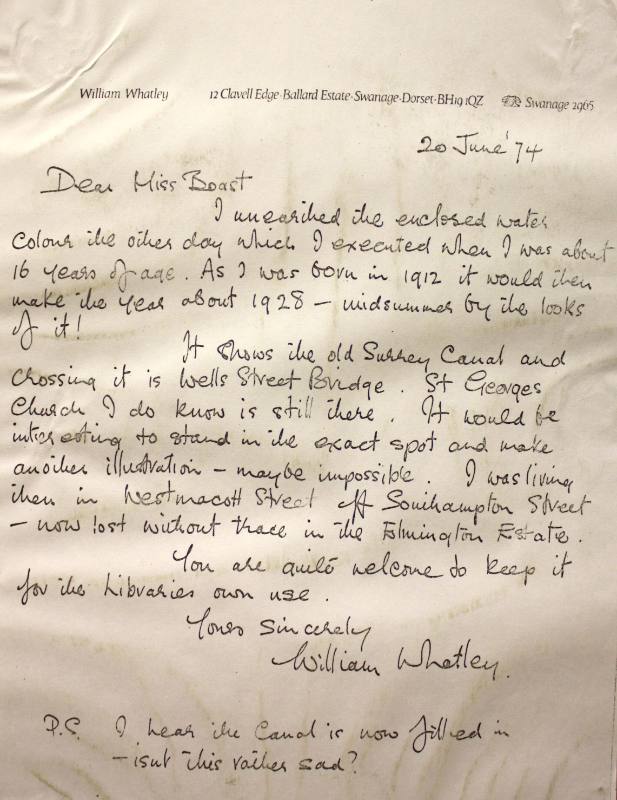 William Whatley 12 Clavell Edge·Ballard Estate·Swanage·Dorset·BH19 1QZ ☎ Swanage 2965
20 June '74
Dear Miss Boast
I unearthed the enclosed water
colour the other day which I executed when I was about
16 years of age. As I was born in 1912 it would then
make the year about 1928 – midsummer by the looks
of it!
It shows the old Surrey Canal and
crossing it is Wells Street Bridge. St Georges
Church I do know is still there. It would be
interesting to stand in the exact spot and make
another illustration – maybe impossible. I was living
then in Westmacott Street off Southampton Street
– now lost without trace in the Elmington Estate.
You are quite welcome to keep it
for the Libraries own use.
Yours sincerely
William Whatley.
P.S. I hear the Canal is now filled in
– isnt this rather sad?